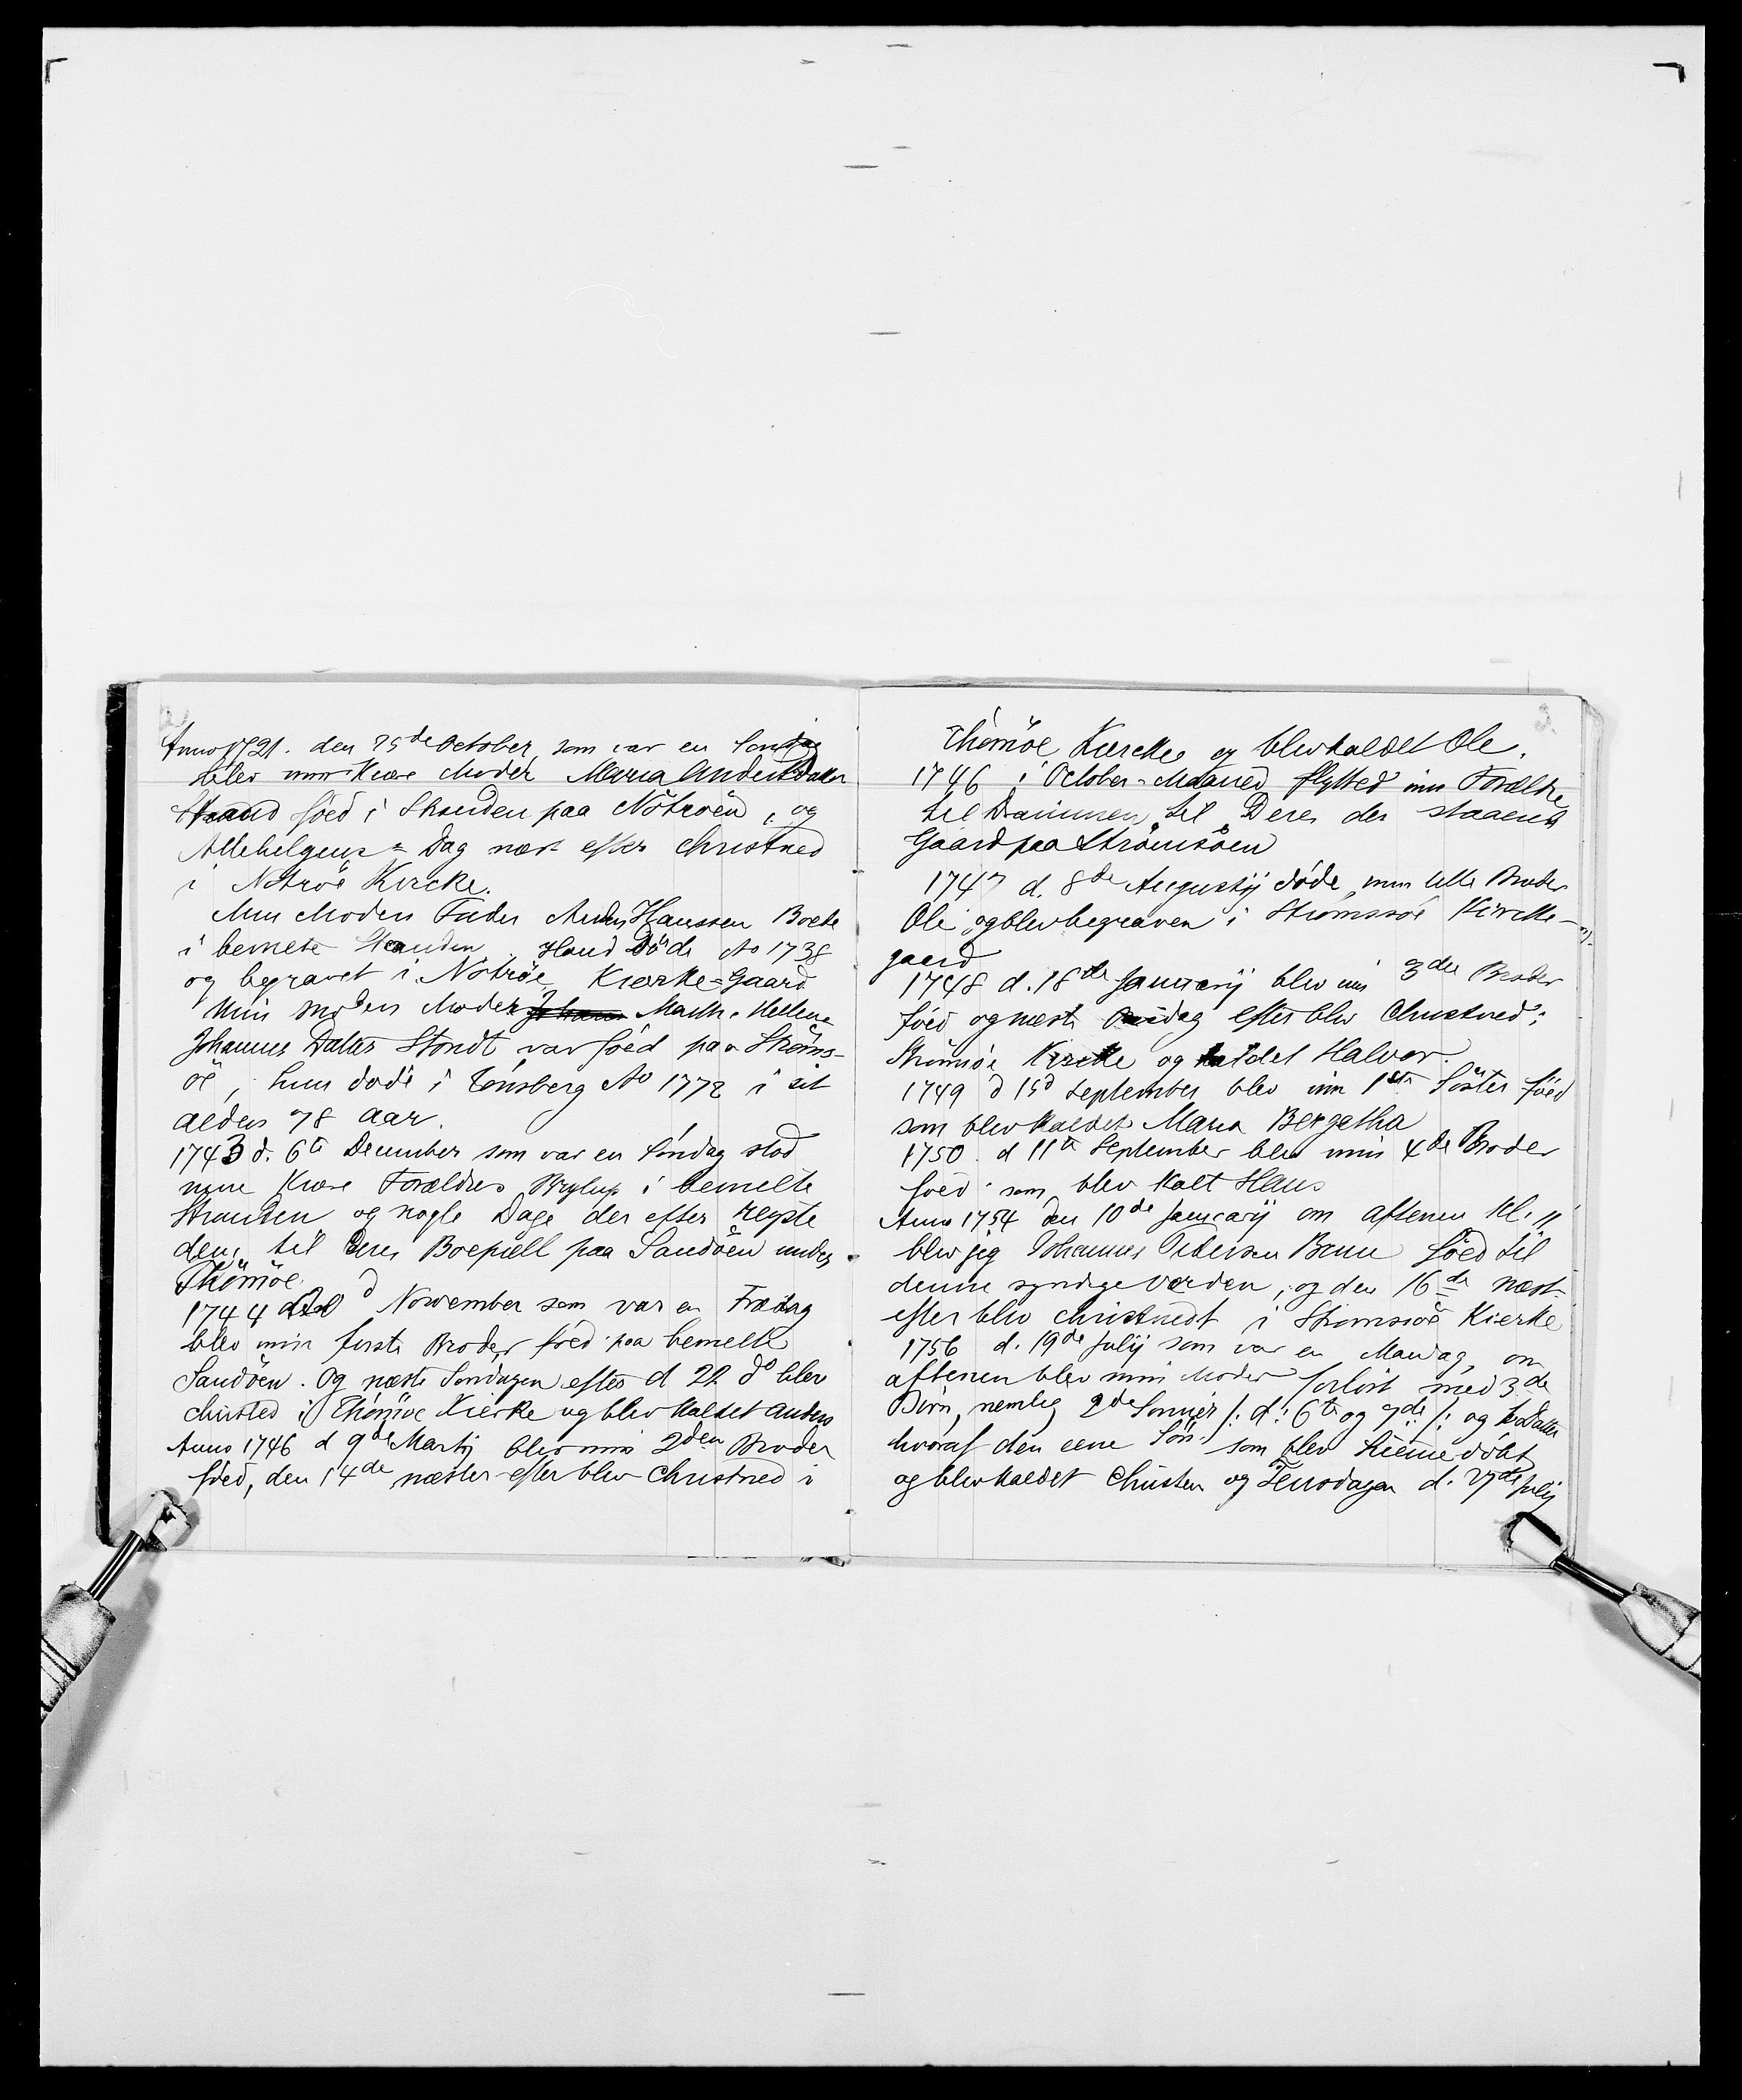 Anno 1721. den 25de October som var en Sondag
blev min Kiære Moder Maria Anders Datter
Straand föed i Stranden paa Nötroën, og
Allehelgens=Dag næst efter Christned
i Notröe Kircke.
Min Moders Fader Anders Hanssen Boede
i bemete Stranden, Hand Döde Ao 1738
og begravet i Notröe Kierke=Gaard
Min Moders Moder Marth. Hellene
Johannes Datter Stondt var föed paa Ströms-
öe, hun döde i Tönsberg Ao 1772 i sit
alders 78 aar.
1743 d. 6te December som var en Söndag stod
mine Kiære Forældres Brylup i bemelte
Stranden og nogle Dage der efter reyste
den til deres Boepæll paa Sandöen under
Thömöe
1744 d November som var en Fredag
blev min förste Broder föed paa bemelte
Sandöen. Og næste Söndagen efter d 22 do blev
christed i Thömöe Kierke og blev kaldet Anders
Anno 1746 d 9de Martij blev min 2den Broder
föed, den 14de næster efter blev Christned i
3.
Thömöe Kircke og blev kaldet Ole.
1746 i October=Maaned flytted min Forældre
til Drammen til Deres der staaende
Gaard paa Strömsöen
1747 d. 8de Augustij döde min lille Broder
Ole, og blev begraven i Strömssöe Kircke-
gaard
1748 d. 18de Januarij blev min 3die Broder
föed og næste Onsdag efter blev Christned i
Strömsöe Kircke og kaldet Halvor.
1749 d 15d September blev min 1ste Söster föed
som blev kaldet Maria Bergetha
1750 d 11te September blev min 4de Broder
föed som blev kalt Hans
Anno 1754 den 10de Januarij om aftenen Kl. 11
blev jeg Johannes Pedersen Bruu föed til
denne syndige Verden, og den 16de næst
efter blev christnedt i Strömssöe Kierke
1756 d. 19de Julij som var en Mandag, om
aftenen blev min Moder forlöst med 3de
Börn, nemlig 2de Sönner /: d: 6te og 7de /: og 1 Datter
hvoraf den eene Sön som blev hieme döbt
og blev kaldet Christen og Tensdagen d. 27de Julij